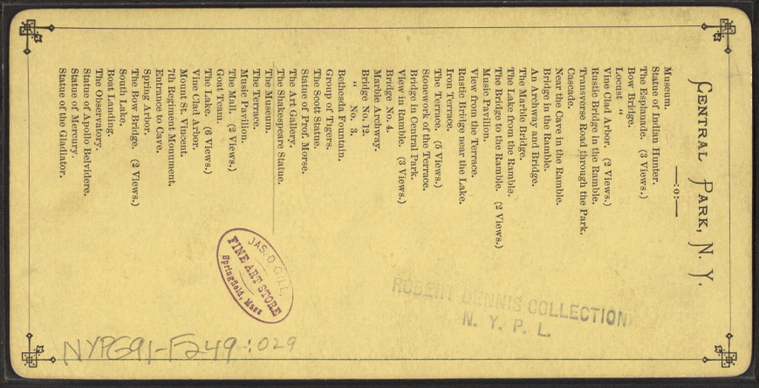 CENTRAL PARK, N. Y.
—:o:—
Museum.
Statue of Indian Hunter.
The Esplanade. (3 Views.)
Bow Bridge.
Locust
Vine Clad Arbor. (2 Views.)
Rustic Bridge in the Ramble.
Transverse Road through the Park.
Cascade.
Near the Cave in the Ramble.
Bridge in the Ramble.
An Archway and Bridge.
The Marble Bridge.
The Lake from the Ramble.
The Bridge to the Ramble. (2 Views.)
Music Pavilion.
View from the Terrace.
Rustic Bridge near the Lake.
Iron Terrace.
The Terrace. (5 Views.)
Stonework of the Terrace.
Bridge in Central Park.
View in Ramble. (3 Views.)
Bridge No. 4.
Marble Archway.
Bridge No. 12.
" No. 3.
Bethesda Fountain.
Group of Tigers.
The Scott Statue.
Statue of Prof. Morse.
The Art Gallery.
The Shakespeare Statue.
The Museum.
The Terrace.
Music Pavilion.
The Mall. (2 Views.)
Goat Team.
The Lake. (6 Views.)
Vine Clad Arbor.
Mount St. Vincent.
7th Regiment Monument.
Entrance to Cave.
Spring Arbor.
The Bow Bridge. (2 Views.)
South Lake.
Boat Landing.
The Observatory.
Statue of Apollo Belvidere.
Statue of Mercury.
Statue of the Gladiator.
JAS. D. GILL,
FINE ART STORE
Springfield, Mass
ROBERT DENNIS COLLECTION
N. Y. P. L.
NYPG91-F249:029